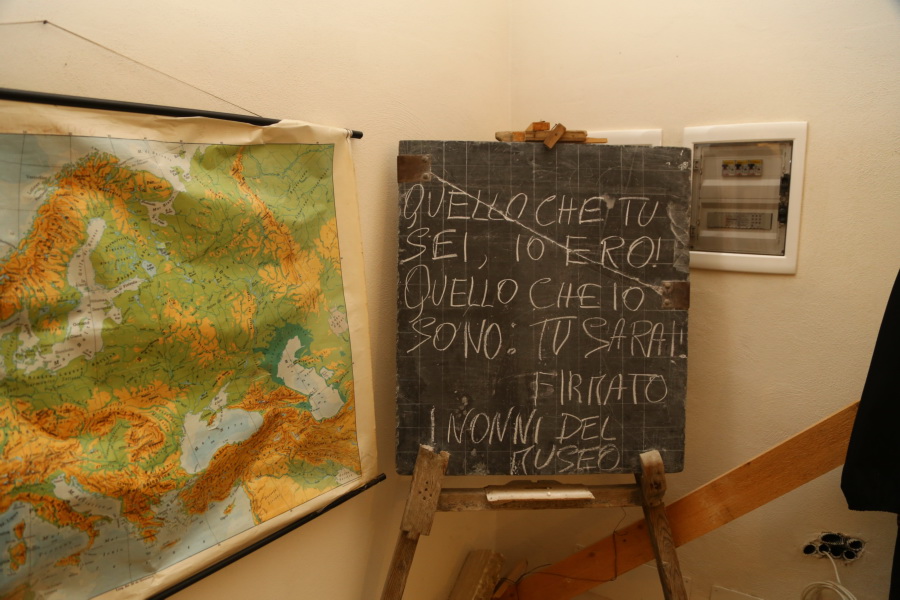 QUELLO CHE TU
SEI, IO ERO!
QUELLO CHE IO
SONO: TU SARAI!
FIRMATO
I NONNI DEL
MUSEO